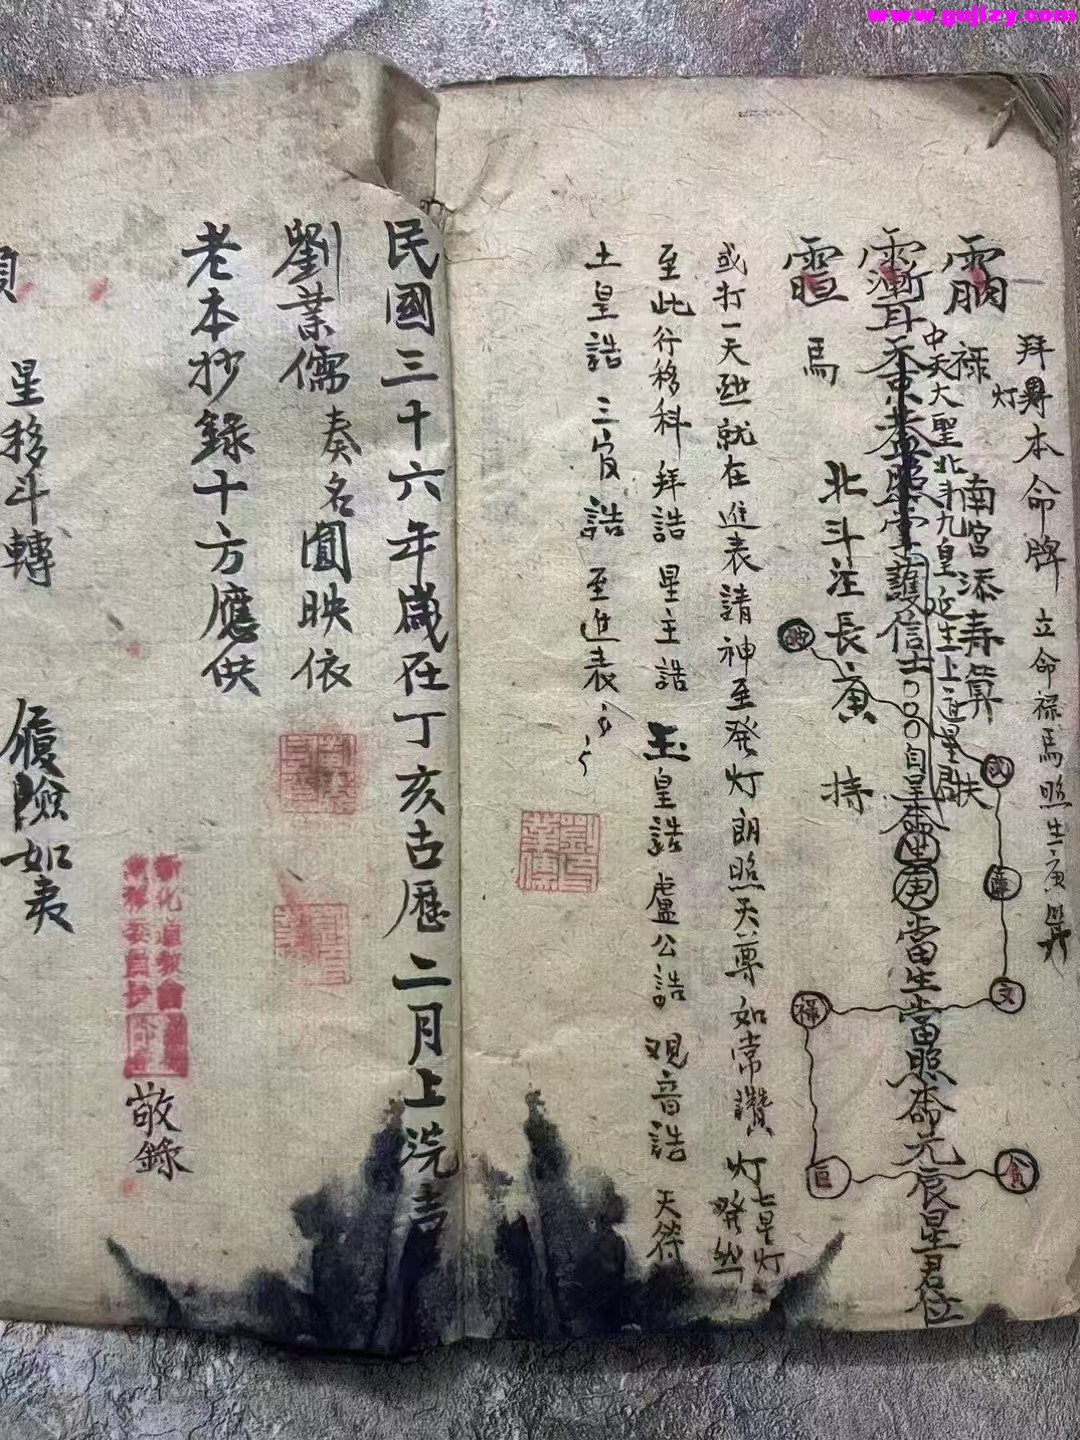 www.gujizy.com
拜昇本命牌 立命禄馬照生庚昇
灯
禄 南宮添寿算 扶
中天大聖北斗九皇延生上道星君
護信士〇〇〇自皇
當生當照命元辰星君位
馬 北斗注長庚 持
武
文
禄
巨
貪
或打一天 就在進表請神至發灯朗照天尊如常讚灯
七星灯
至此行移科 拜誥 星主誥 玉皇誥 盧公誥 观音誥 天符
土皇誥 三官誥 至進表
民國三十六年歲在丁亥古歷二月上浣吉
劉業儒 奏名圓映依
老本抄錄十方應供
新化道教會
敬錄
星移斗轉 履險如夷